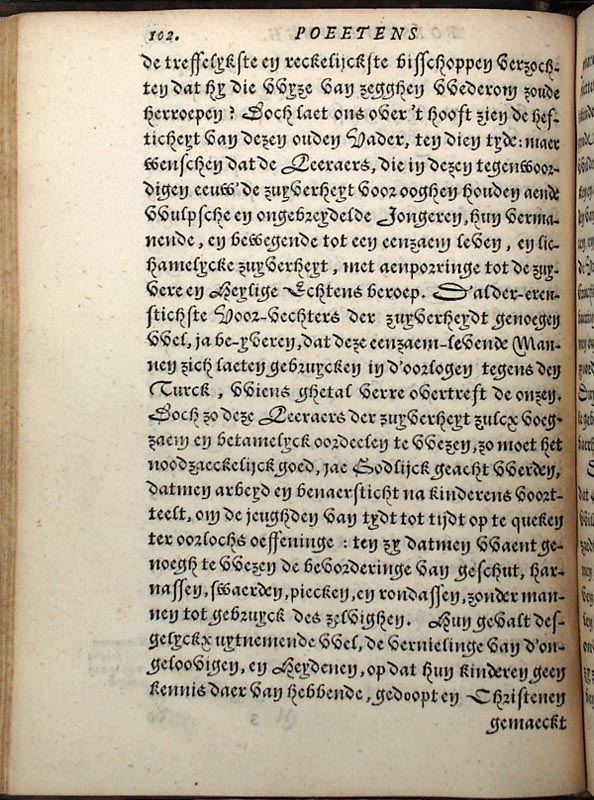 102. POEETENS
de treffelykste en reckelijckste bisschoppen verzoch-
ten dat hy die vvyze van zegghen vvederom zoude
herroepen? Doch laet ons over 't hooft zien de hef-
ticheyt van dezen ouden Vader, ten dien tyde: maer
wenschen dat de Leeraers, die in dezen tegenwoor-
digen eeuw' de zuyverheyt voor ooghen houden aende
vvulpsche en ongebreydelde Jongeren, huy verma-
nende, en bewegende tot een eenzaem leven, en lic-
hamelycke zuyverheyt, met aenporringe tot de zuy-
vere en Heylige Echtens beroep. D'alder-eren-
stichste Voor-vechters der zuyverheydt genoegen
vvel, ja be-yveren, dat deze eenzaem-levende Man-
nen zich laeten gebruycken in d'oorlogen tegens den
Turck, vviens ghetal verre overtreft de onzen.
Doch zo deze Leeraers der zuyverheyt zulcx voeg-
zaem en betamelyck oordeelen te vvezen, zo moet het
noodzaeckelijck goed, jae Godlijck geacht vverden,
datmen arbeyd en benaersticht na kinderens voort-
teelt, om de jeughden van tydt tot tijdt op te queken
ter oorlochs oeffeninge: ten zy datmen vvaent ge-
noegh te vvezen de bevorderinge van geschut, har-
nassen, swaerden, piecken, en rondassen, zonder man-
nen tot gebruyck des zelvighen. Huy gevalt des-
gelyckx uytnemende vvel, de vernielinge van d'on-
geloovigen, en Heydenen, op dat huy kinderen geen
kennis daer van hebbende, gedoopt en Christenen
gemaeckt